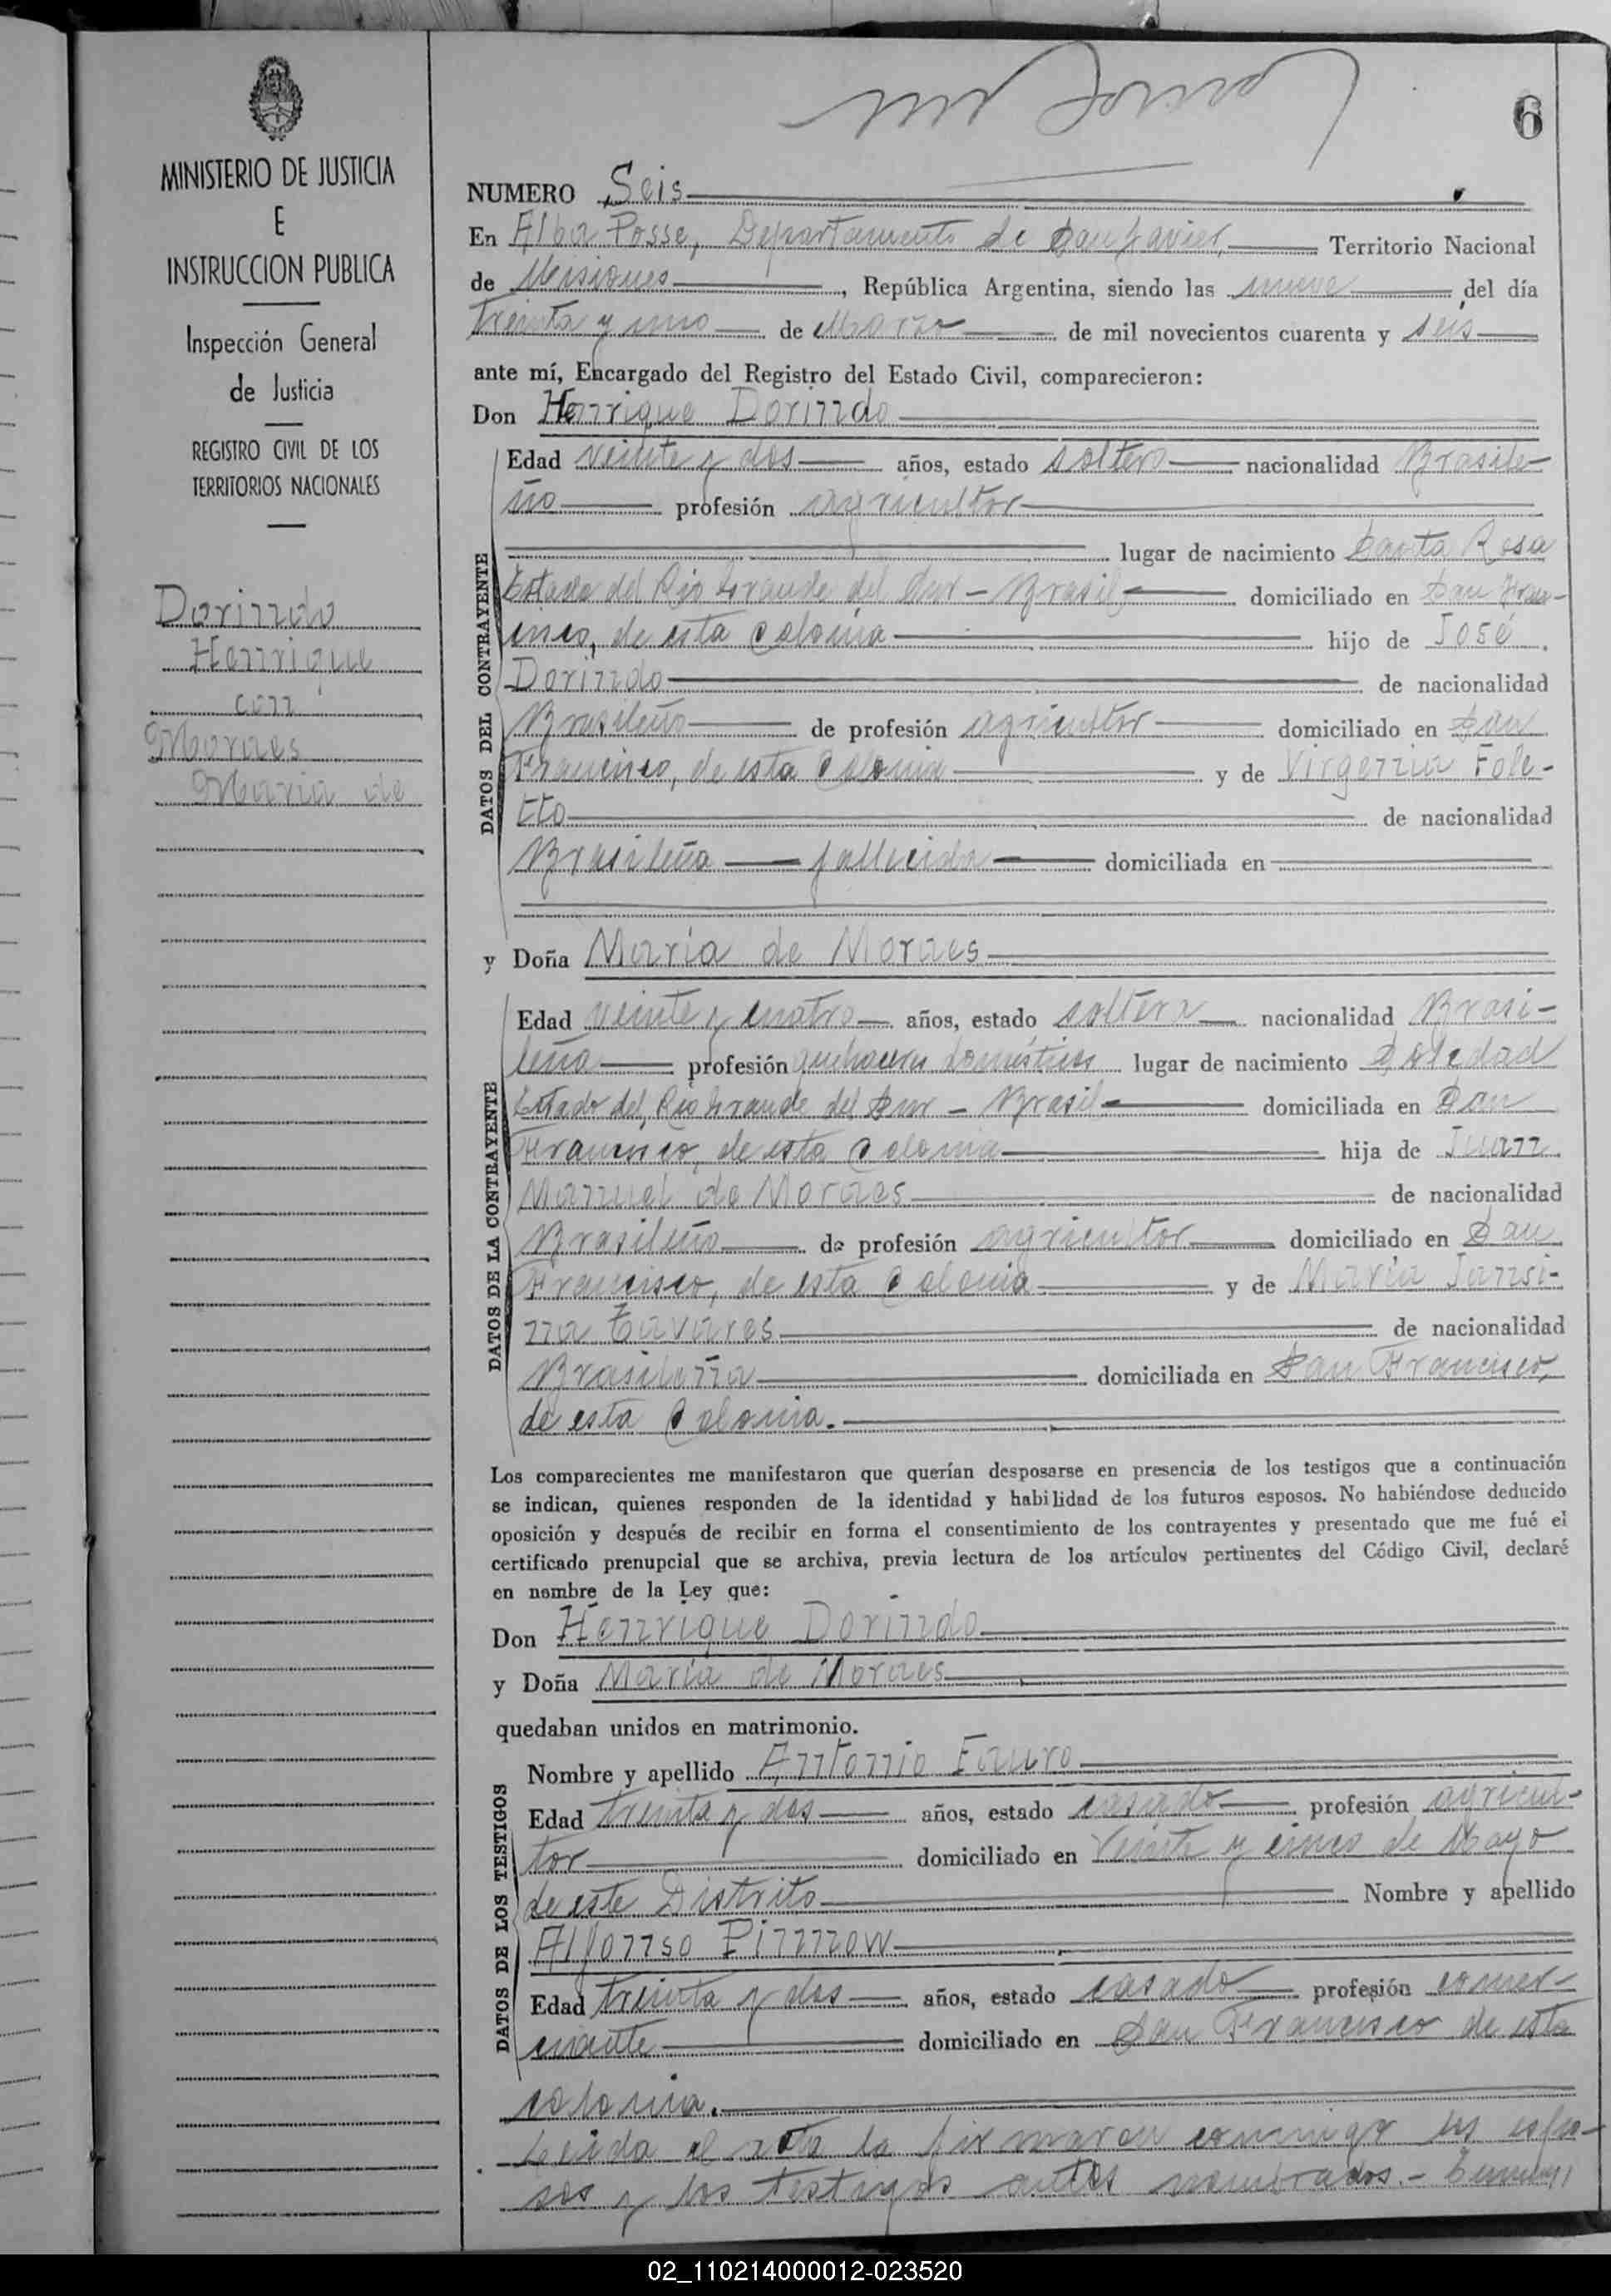 6
MINISTERIO DE JUSTICIA
E
INSTRUCCION PUBLICA
Inspección General
de Justicia
REGISTRO CIVIL DE LOS
TERRITORIOS NACIONALES
Dorindo
Henrique
con
Moraes
Maria de
NUMERO Seis
En Alba Posse, Departamento de San Javier, Territorio Nacional
de Misiones, República Argentina, siendo las nueve del día
treinta y uno de Marzo de mil novecientos cuarenta y seis
ante mí, Encargado del Registro del Estado Civil, comparecieron:
Don Henrique Dorindo
DATOS DEL CONTRAYENTE
Edad veinte y dos años, estado soltero nacionalidad Brasile-
ño profesión agricultor
lugar de nacimiento Santa Rosa
Estado del Rio Grande del Sur - Brasil domiciliado en San Fran-
cisco, de esta Colonia hijo de José
Dorindo de nacionalidad
Brasileño de profesión agricultor domiciliado en San
Francisco, de esta Colonia y de Virgennia Fole-
tto de nacionalidad
Brasileña fallecida domiciliada en
y Doña Maria de Moraes
DATOS DE LA CONTRAYENTE
Edad veinte y cuatro años, estado soltera nacionalidad Brasi-
leña profesión quehaceres domésticos lugar de nacimiento Soledad
Estado del Rio Grande del Sur - Brasil domiciliada en San
Francisco, de esta Colonia hija de Juan
Manuel de Moraes de nacionalidad
Brasileño de profesión agricultor domiciliado en San
Francisco, de esta Colonia y de Maria Jansi-
na Tavares de nacionalidad
Brasileña domiciliada en San Francisco,
de esta Colonia.
Los comparecientes me manifestaron que querían desposarse en presencia de los testigos que a continuación
se indican, quienes responden de la identidad y habilidad de los futuros esposos. No habiéndose deducido
oposición y después de recibir en forma el consentimiento de los contrayentes y presentado que me fué el
certificado prenupcial que se archiva, previa lectura de los artículos pertinentes del Código Civil, declaré
en nombre de la Ley que:
Don Henrique Dorindo
y Doña Maria de Moraes
quedaban unidos en matrimonio.
DATOS DE LOS TESTIGOS
Nombre y apellido Antonio Fauro
Edad treinta y dos años, estado casado profesión agricul-
tor domiciliado en Veinte y cinco de Mayo
de este Distrito Nombre y apellido
Alfonso Pinnow
Edad treinta y dos años, estado casado profesión comer-
ciante domiciliado en San Francisco de esta
colonia.
Leida el acta la firmaron conmigo los espo-
sos y los testigos antes nombrados.-
02_110214000012-023520